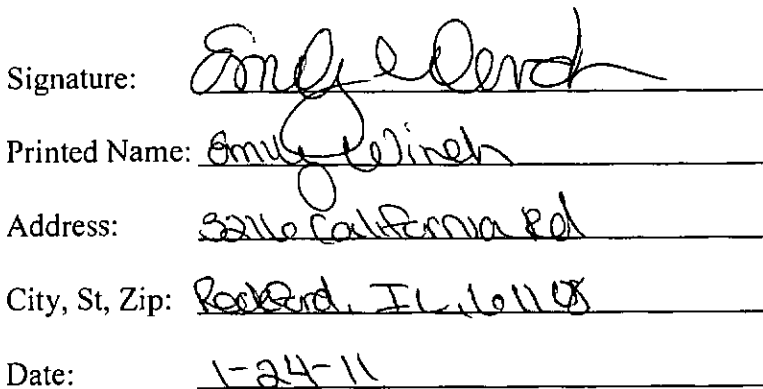 Signature: Emily Winch
Printed Name: Emily Winch
Address: 3216 California Rd
City, St, Zip: Rockford, IL, 61108
Date: 1-24-11